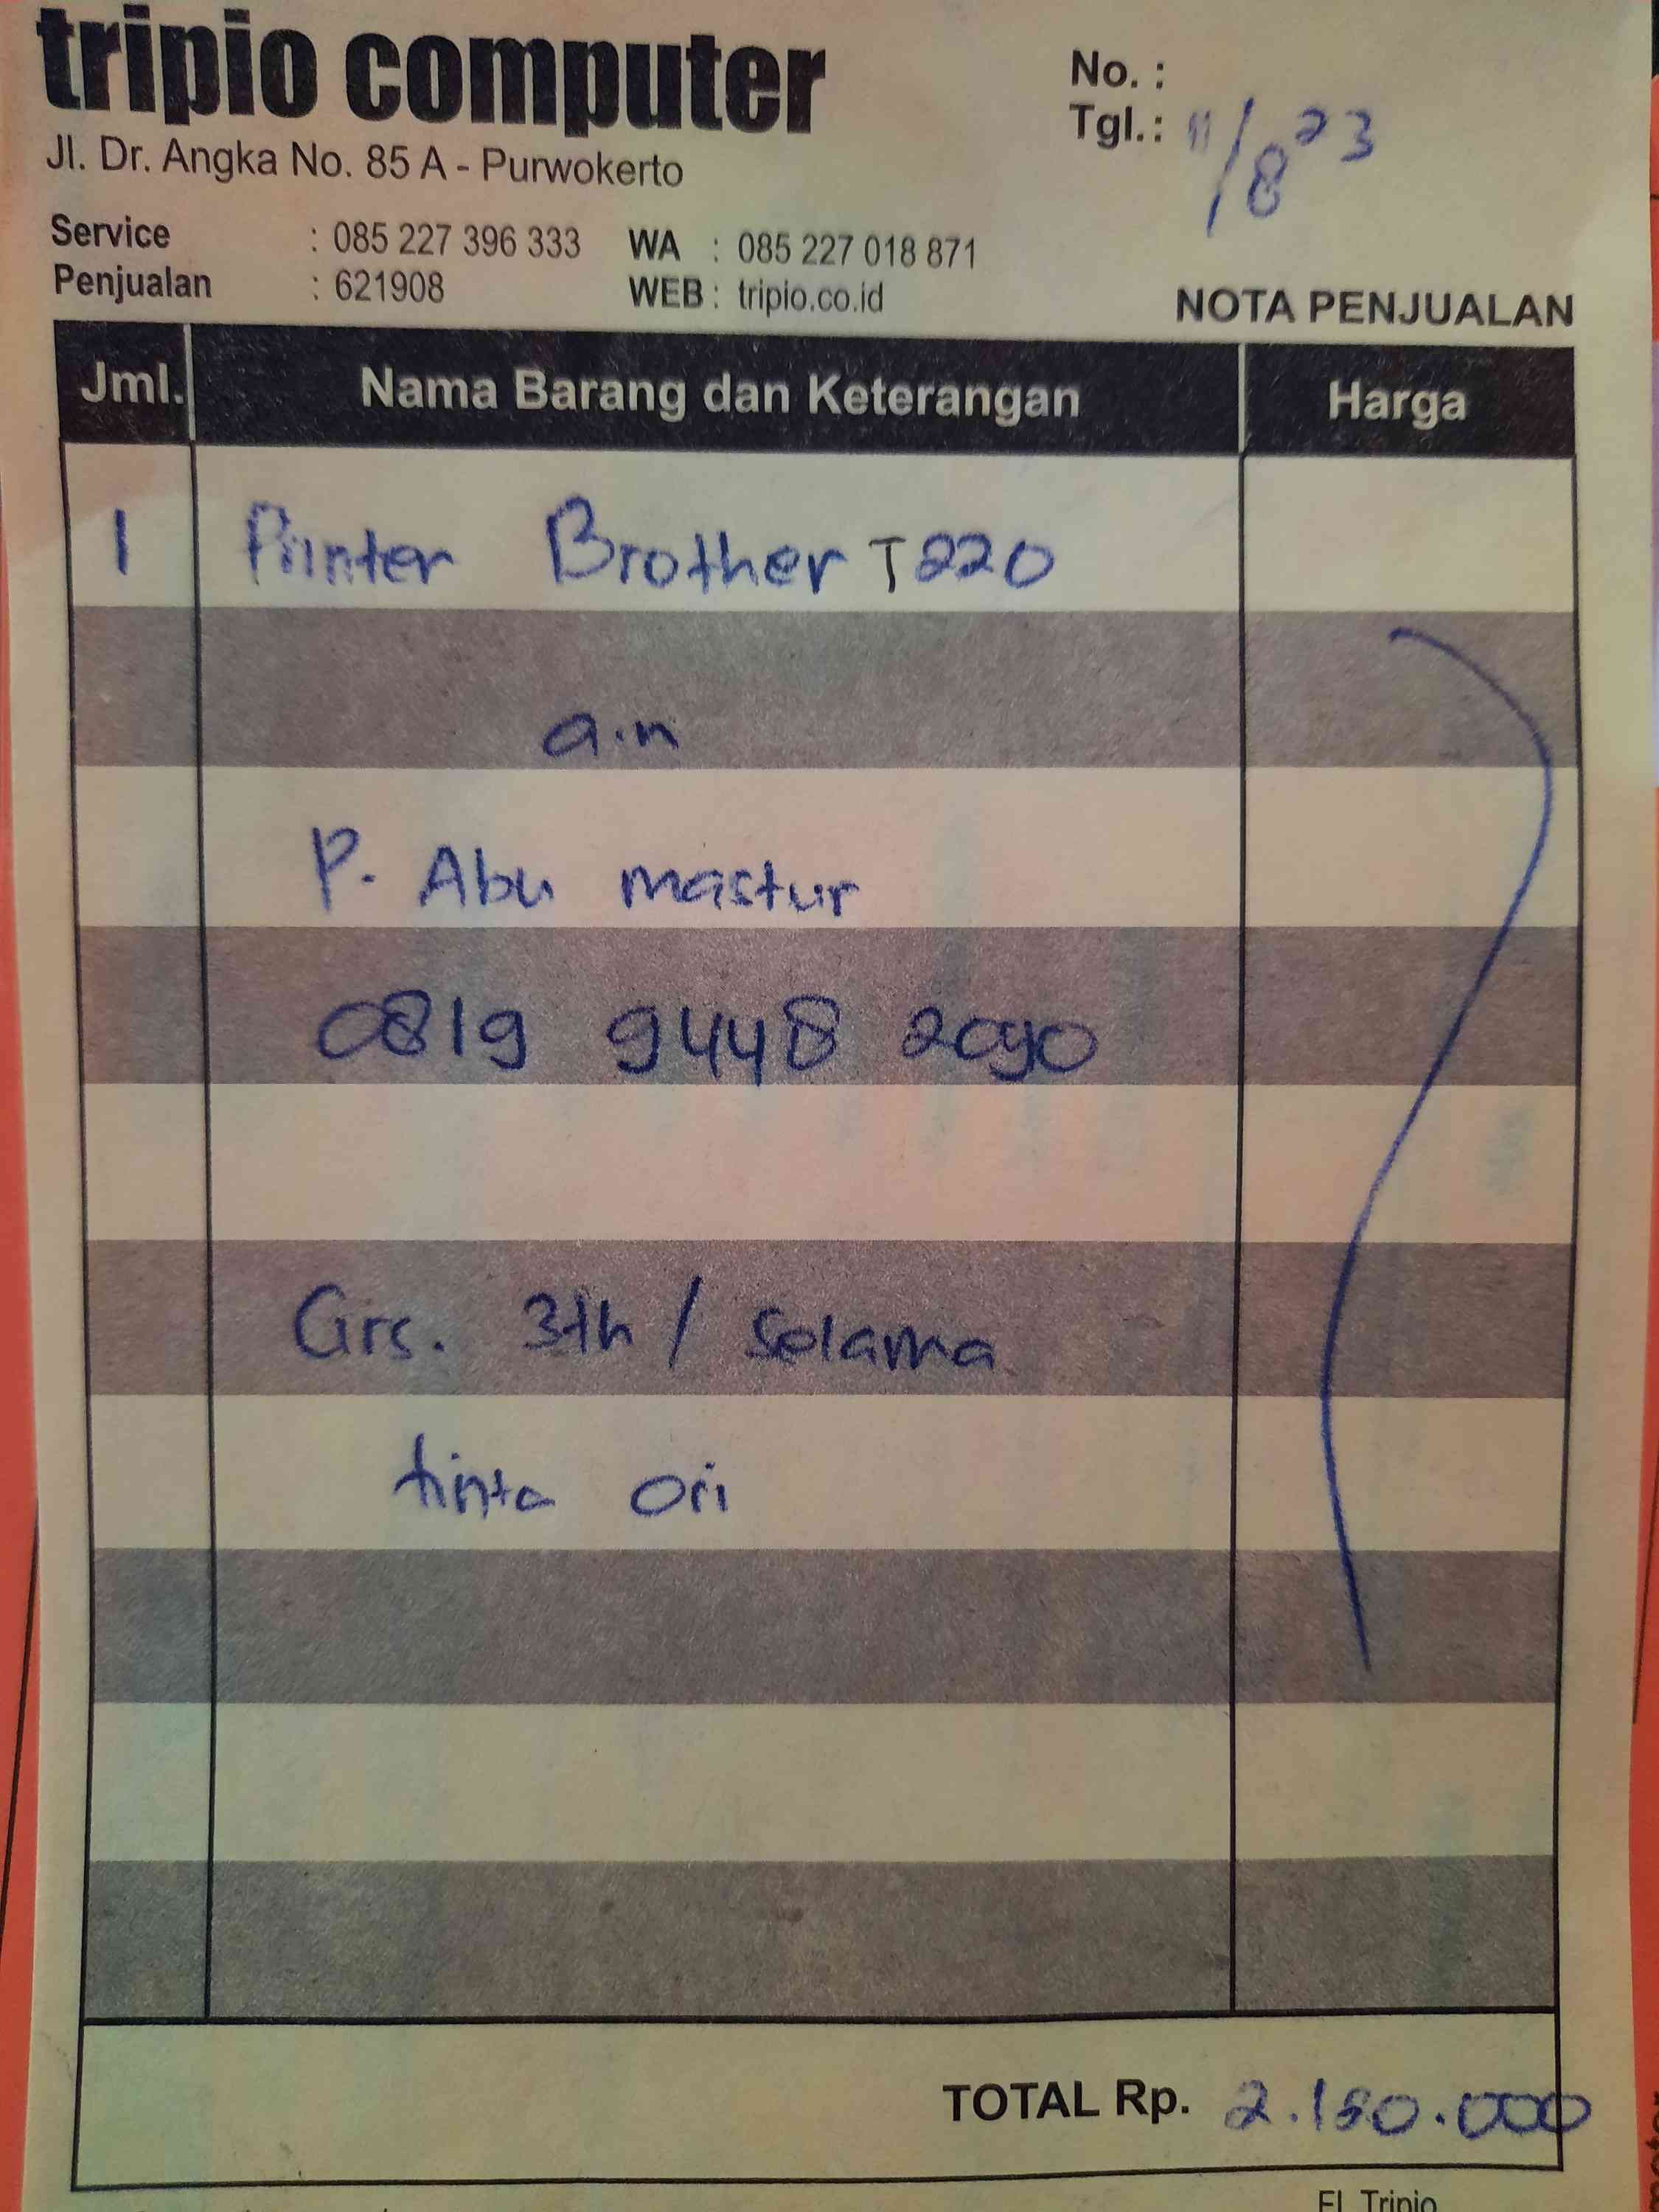 tripio computer
Jl. Dr. Angka No. 85 A - Purwokerto
No. :
Tgl.: 11/8 23
Service : 085 227 396 333 WA : 085 227 018 871
Penjualan : 621908 WEB : tripio.co.id
NOTA PENJUALAN
Jml. Nama Barang dan Keterangan Harga
1 Printer Brother T220
a.n
P. Abu mastur
0819 9448 2090
Grs. 3th / Selama
tinta Ori
TOTAL Rp. 2.180.000
FL Tripio